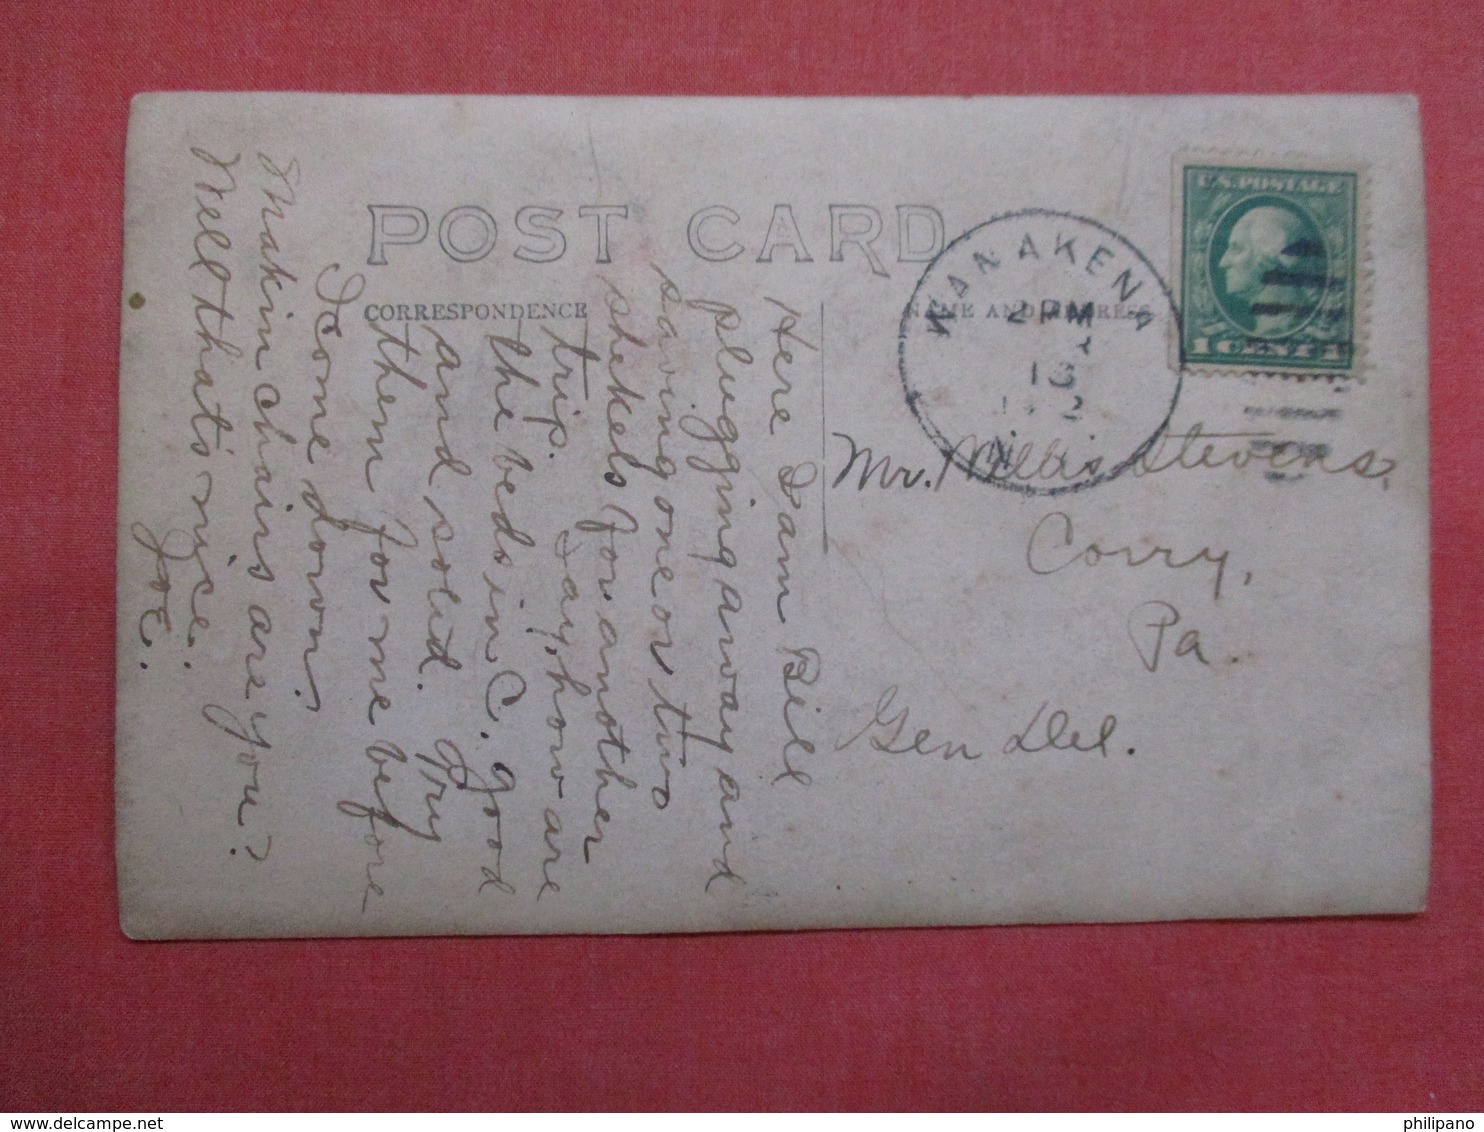 POST CARD
CORRESPONDENCE
NAME AND ADDRESS
WANAKENA
2 PM
13
N.
U.S. POSTAGE
1 CENT 1
Here I am Bill
plugging away and
saving one or two
shekels for another
trip. Say, how are
the beds in C. good
and solid. Try
them for me before
I come down.
Makin chairs are you?
Well that's nice.
Joe.
Mr. Willis Stevens,
Corry,
Pa.
Gen Del.
philipano